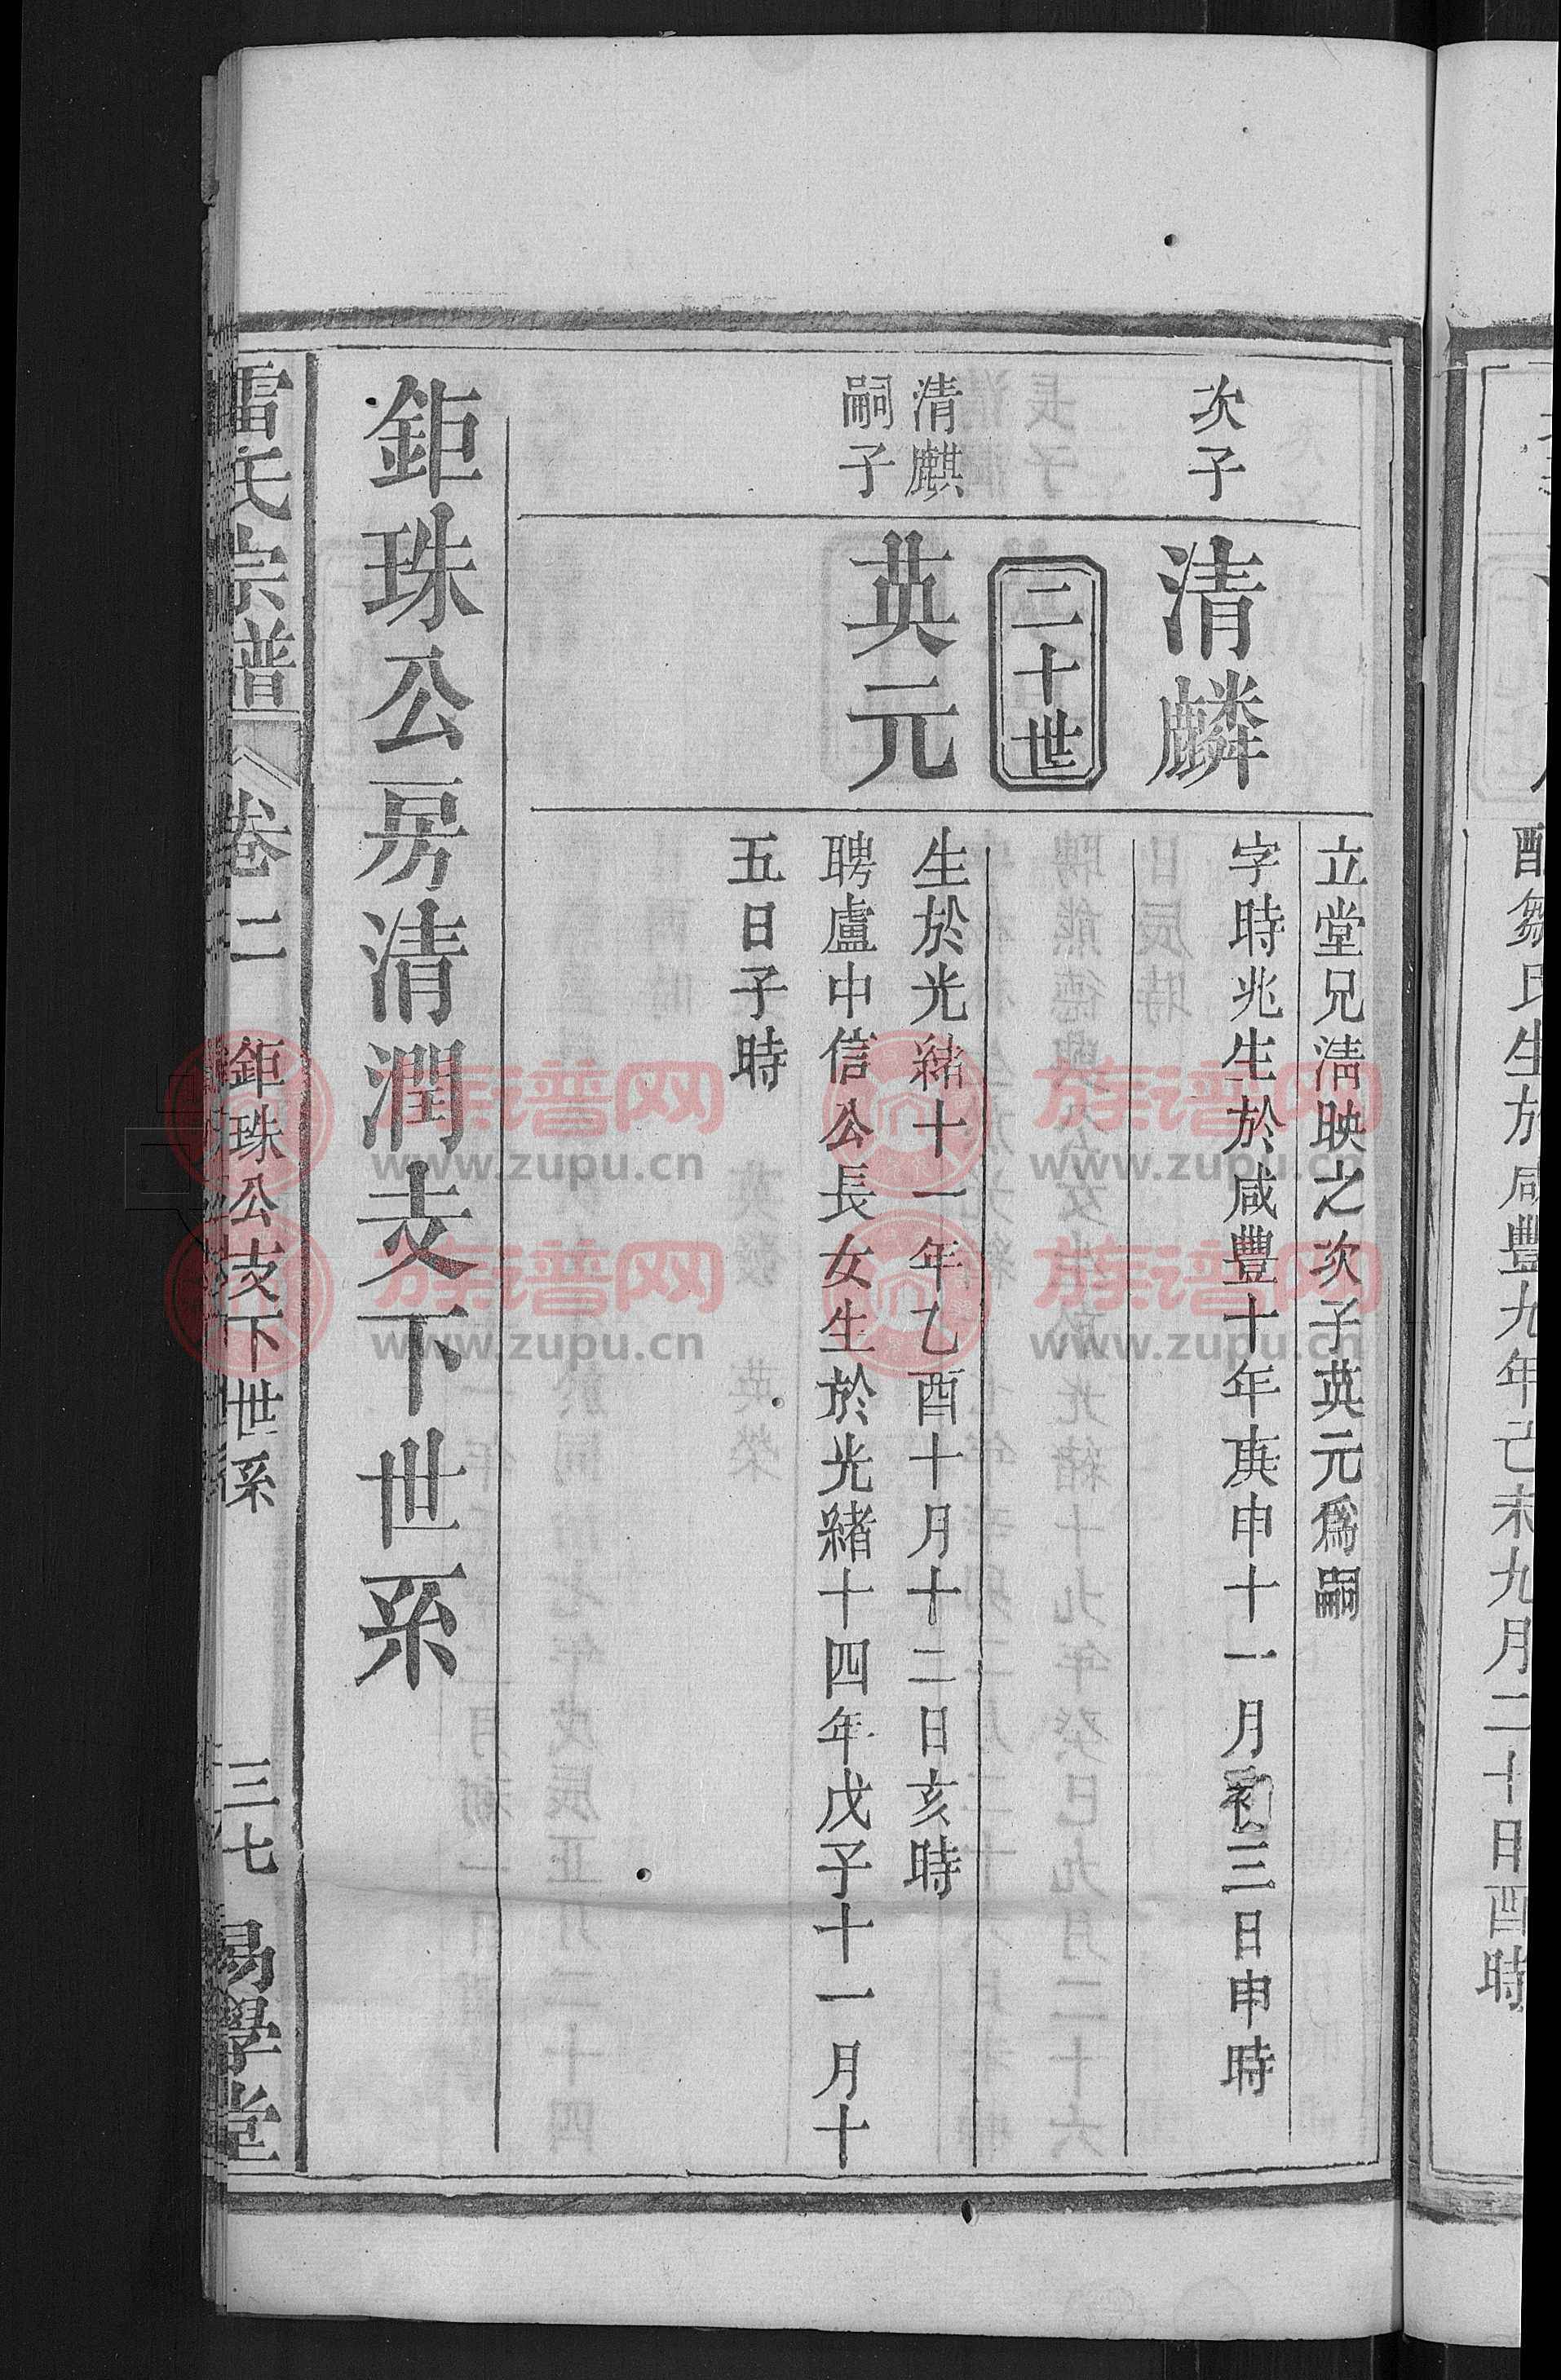 配鄒氏生於咸豐九年己未九月二十日酉時
立堂兄清映之次子英元爲嗣
次子
清麟
字時兆生於咸豐十年庚申十一月初三日申時
二十世
清麒
嗣子
英元
生於光緒十一年乙酉十月十二日亥時
聘盧中信公長女生於光緒十四年戊子十一月十
五日子時
鉅珠公房清潤支下世系
雷氏宗譜
卷二
鉅珠公支下世系
三七
易學堂
族谱网
www.zupu.cn
族谱网
www.zupu.cn
族谱网
www.zupu.cn
族谱网
www.zupu.cn